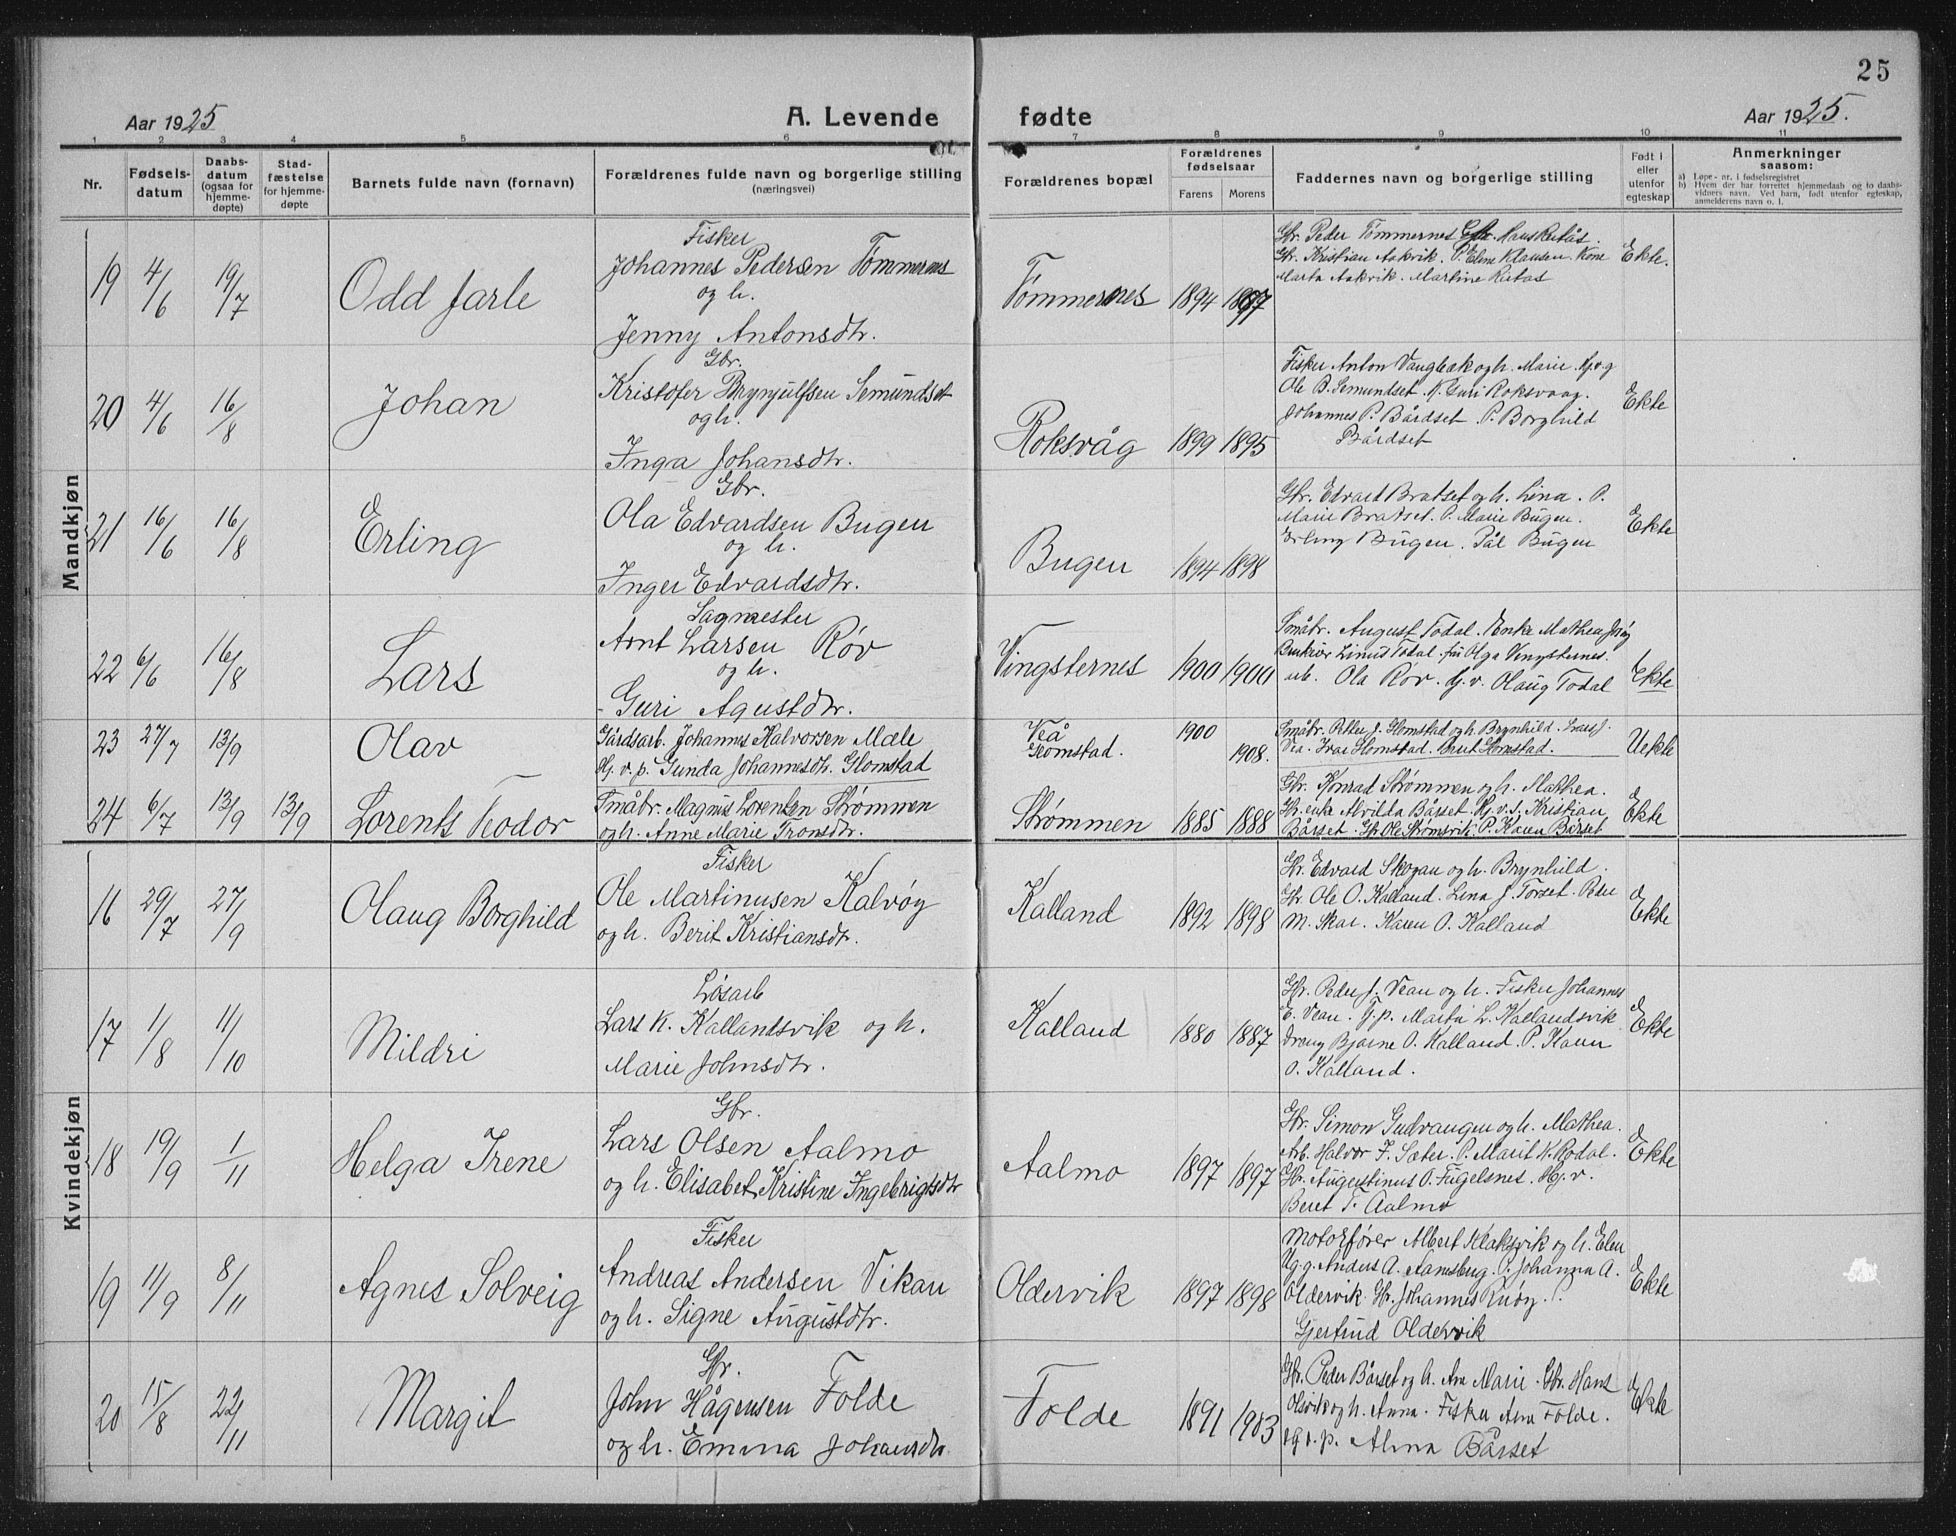 25
Aar 1925
A. Levende fødte
Aar 1925.
1 2 3 4 5 6 7 8 9 10 11
Nr.
Fødsels-
datum
Daabs-
datum
(ogsaa for
hjemme-
døpte)
Stad-
fæstelse
for hjemme-
døpte
Barnets fulde navn (fornavn)
Forældrenes fulde navn og borgerlige stilling
(næringsvei)
Forældrenes bopæl
Forældrenes
fødselsaar
Farens Morens
Faddernes navn og borgerlige stilling
Født i
eller
utenfor
egteskap
Anmerkninger
saasom:
a) Løpe-nr. i fødselsregistret
b) Hvem der har forrettet hjemmedaab og to daabs-
vidners navn. Ved barn, født utenfor egteskap,
anmelderens navn o. l.
Mandkjøn
19 4/6 19/7 Odd Jarle
Fisker
Johannes Pedersen Tømmernes
og h.
Jenny Antonsdtr.
Tømmernes 1894 1897
Gbr. Peder Tømmernes Gbr. Hans
Gbr. Kristian Aakvik. P. Eline Klausen. Kone
Marta Aakvik. Martine
Ekte.
20 4/6 16/8 Johan
Gbr.
Kristofer Brynjulfsen Semundset
og h.
Inga Johansdtr.
Roksvåg 1899 1895
Fisker Anton Vaagleak og h. Marie.
Ole B. Semundset. Guri Roksvaag.
Johannes P. Bårdset. P. Borghild
Bårdset
Ekte
21 16/6 16/8 Erling
Gbr.
Ola Edvardsen Bugen
og h.
Inger Edvardsdtr.
Bugen 1894 1898
Gbr. Edvard Bratset og h. Lina. P.
Marie Bratset. P. Marie Bugen.
Erling Bugen. Pål Bugen
Ekte
22 6/6 16/8 Lars
Sagmester
Arnt Larsen Røv
og h.
Guri Agustdtr.
Vingsternes 1900 1900
Småbr. August Todal. Enke Mathea
Linus Todal. frk Olga Vingsternes.
arb. Ola Røv. Hj.v. Olaug Todal
Ekte
23 27/7 13/9 Olav
Gårdsarb. Johannes Halvorsen Mæle
Hj. v. p. Gunda Johannesdtr. Glomstad
Veå 1900
Glomstad. 1908.
Småbr. Petter J. Glomstad og h. Brynhild. Lars J.
Vea. Ivar Glomstad. Berit Glomstad.
Uekte
24 6/7 13/9 13/9 Lorents Teodor
Småbr. Magnus Lorentsen Strømmen
og h. Anne Marie Tronsdtr.
Strømmen 1885 1888
Gbr. Konrad Strømmen og h. Mathea.
Gbr. enke Alvilda Bårset. Hj. v. S. Kristian
Bårset. Gbr. Ole Strømsvik. P. Karen Bårset
Ekte
Kvindekjøn
16 29/7 27/9 Olaug Borghild
Fisker
Ole Martinusen Kalvøy
og h. Berit Kristiansdtr.
Kalland 1892 1898
Gbr. Edvard Skogan og h. Brynhild.
Gbr. Ole O. Kalland. Lina J. Torset. Peder
M. Skar. Karen O. Kalland
Ekte
17 1/8 11/10 Mildri
Løsarb
Lars K. Kallandsvik og h.
Marie Johnsdtr.
Kalland 1880 1887
Gbr. Peder J. Vean og h. Fisker Johannes
E. Vean. Tj.p. Marta L. Kallandsvik
dreng Bjarne O. Kalland. P. Karen
O. Kalland.
Ekte
18 19/9 1/11 Helga Irene
Gbr.
Lars Olsen Aalmo
og h. Elisabet Kristine Ingebrigtsdtr
Aalmo 1897 1897
Gbr. Simon Gulvangen og h. Mathea.
Arb. Halvor F. Sæter. P. Marit K. Rodal.
Gbr. Augustinus O. Fugelsnes. Hj. v.
Beret T. Aalmo
Ekte
19 11/9 8/11 Agnes Solveig
Fisker
Andreas Andersen Vikan
og h. Signe Augustdtr.
Oldervik 1897 1898
Motorfører Albert Klaksvik og h. Elen
Ug.g. Anders A. P. Johanna A.
Oldervik. Gbr. Johannes
Gjertrud Oldervik
Ekte
20 15/8 22/11 Margit
Gbr.
John Hågensen Folde
og h. Emma Johansdtr.
Folde 1891 1903
Gbr. Peder Bårset og h. Ane Marie. Gbr. Hans
Olsvik og h. Anna. Fisker Arne Folde.
Alma Bårset
Ekte